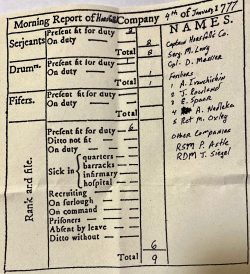 Morning Report of Company 4th of January 1777
NAMES.
Serjeants
Present fit for duty
On duty
8
Total 8
Drumrs.
Present fit for duty 1
On duty
1
Total 1
Fifers.
Present fit for duty
On duty
Total
Rank and file.
Present fit for duty 6
Ditto not fit
On duty
Sick in
quarters
barracks
infirmary
hospital
Recruiting
On furlough
On command
Prisoners
Absent by leave
Ditto without
6
Total 9
Captain Co.
Serg. M. Long
Cpl. D. Massier
1 A.
2 J. Rowland
3 E. Spoor
4 A. Nedleka
5 M. Oxley
Other Companies
RSM P. Astle
RDM J. Siegel